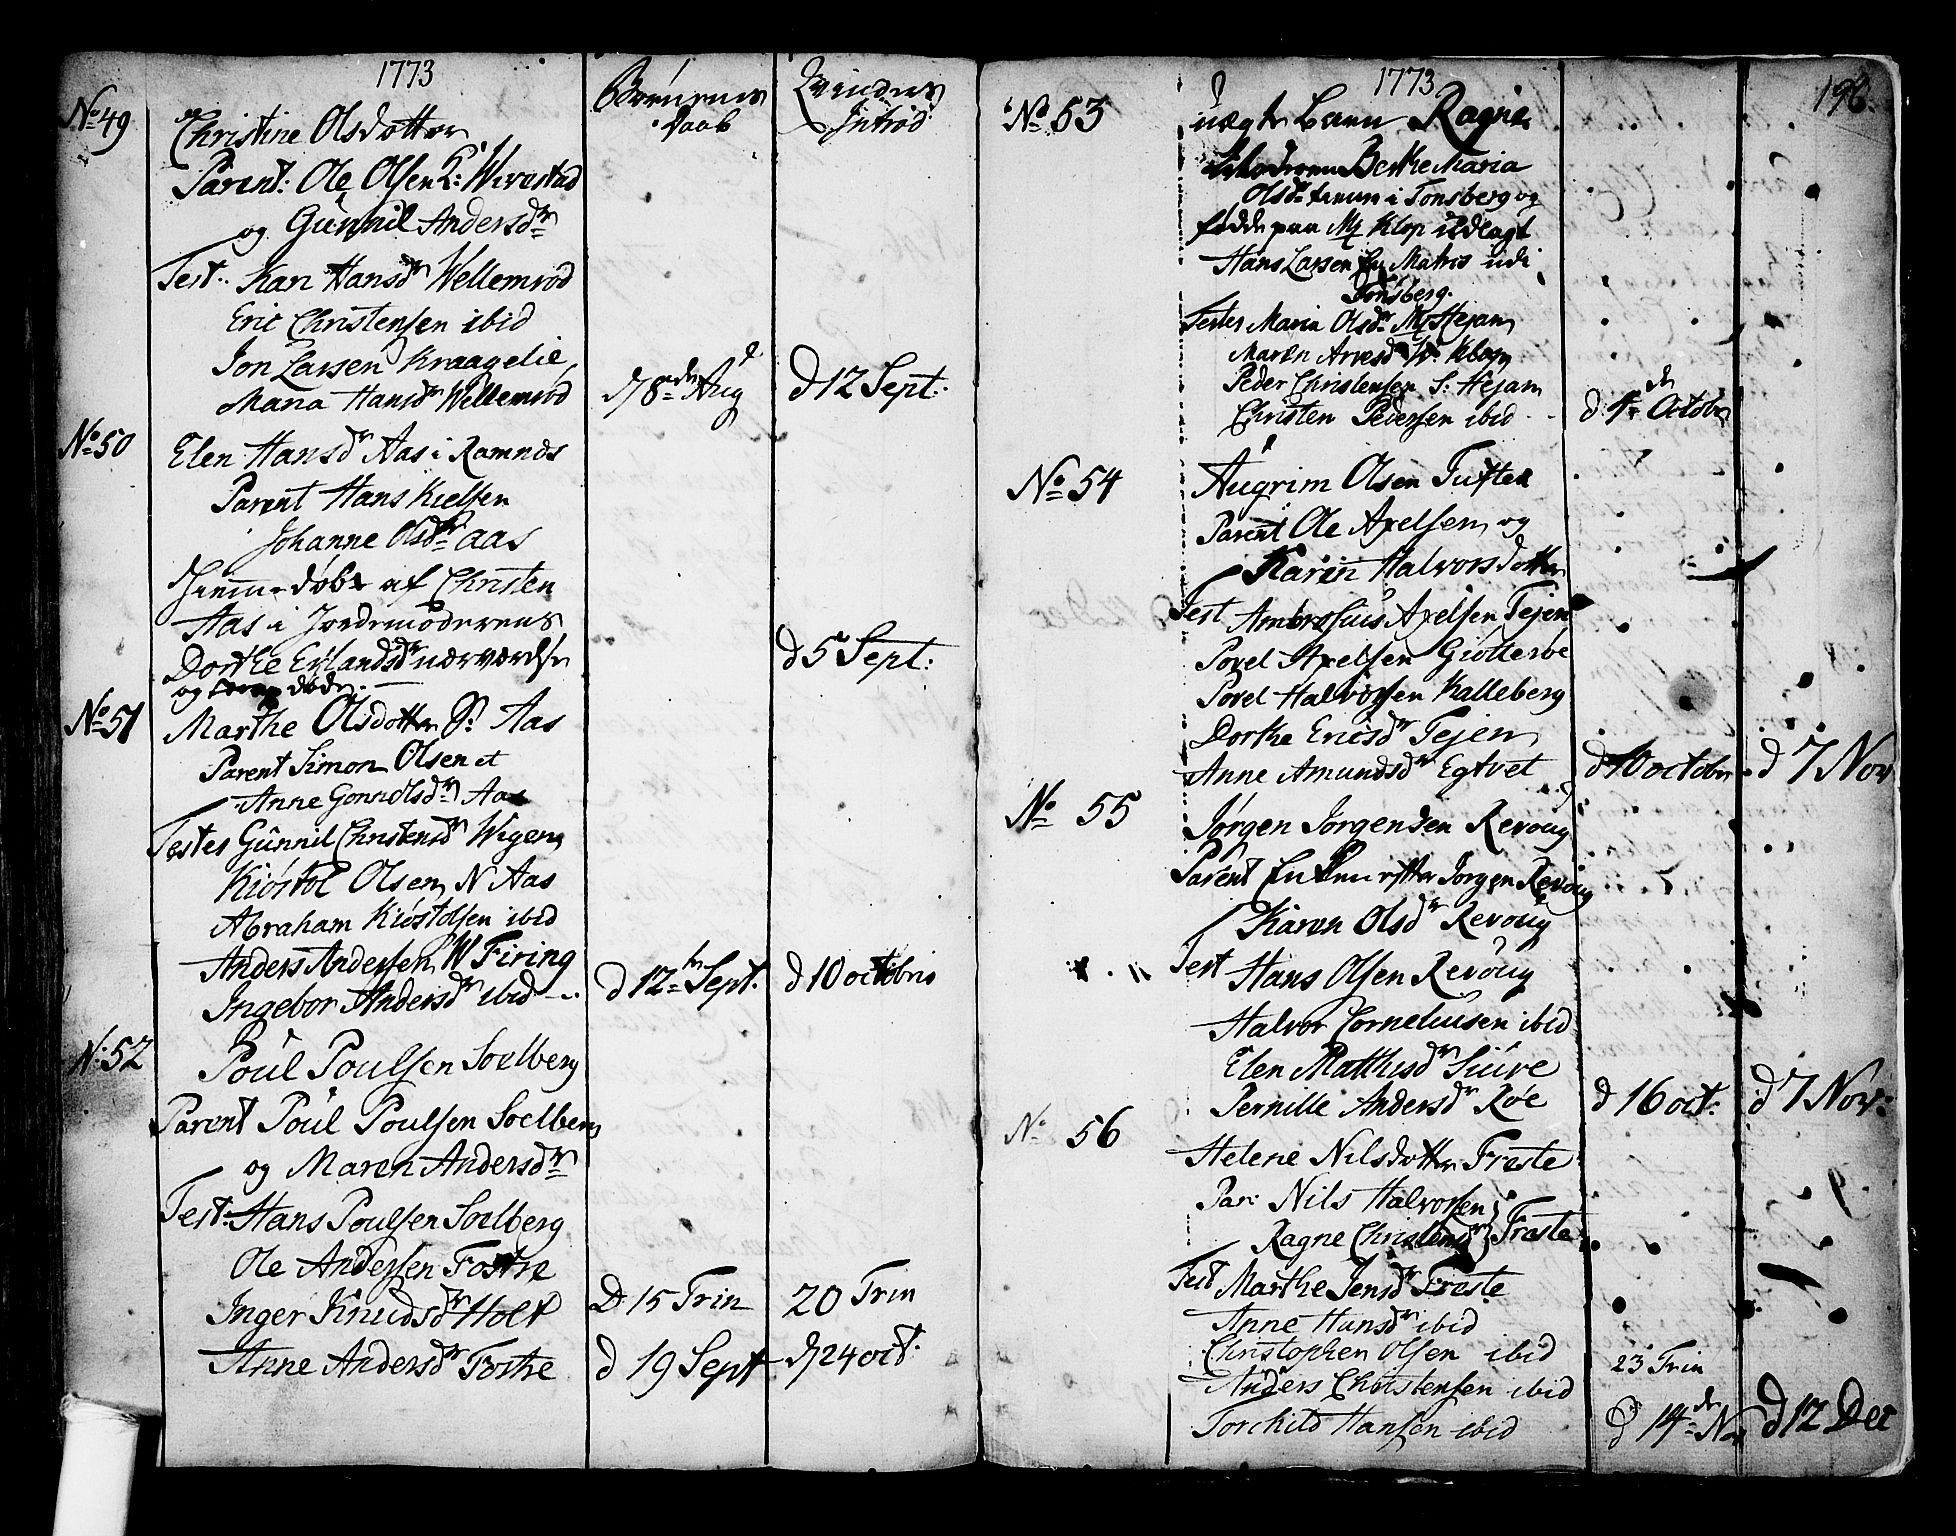 1773
Børnenes Daab
Qvindens Introd
No 49
Christine Olsdotter
Parent: Ole Olsen Wirestad
og Gunnil Andersdr
Test: Kari Hansdr Wellemrød
Eric Christensen ibid
Jon Larsen Kraagelie
Maria Hansdr Wellemrød
d 8de Aug
d 12 Sept:
No 50
Elen Hansdr Aas i Ramnes
Parent Hans Kielsen
Johanne Olsdr Aas
Hiemmedøbt af Christen
Aas i Jordemoderens
Dorthe Erlandsdr nærværelse
og døde.
d 5 Sept:
No 51
Marthe Olsdotter S: Aas
Parent Simon Olsen et
Anne Gonnolsdr Aas
Testes Gunnil Christensdr Wigen
Kiøstol Olsen N Aas
Abraham Kiøstolsen ibid
Anders Andersen W Firing
Ingebor Andersdr ibid
d 12te Sept.
d 10 octobris
N: 52
Poul Poulsen Soelberg
Parent Poul Poulsen Soelberg
og Maren Andersdr
Test: Hans Poulsen Soelberg
Ole Andersen Fostre
Inger Knudsdr Holt
Anne Andersdr Fostre
D 15 Trin
d 19 Sept
20 Trin
d 24 oct.
1773
196.
No 53
uægte Barn Ragne
Moderen Berthe Maria
Olsdr tienn i Tonsberg og
fødde paa Klop udlagt
Hans Larsen En Matros udi
Tonsberg.
Testes Maria Olsdr Hejam
Maren Arnesdr Klop
Peder Christensen S: Hejam
Christen Pedersen ibid
d 4de Octobr
No 54
Augrim Olsen Tufte
Parent Ole Axelsen og
Karen Halvorsdotter
Test Ambrosius Axelsen Tejen
Povel Axelsen Giøtterbø
Povel Halvorsen Kalleberg
Dorthe Ericsdr Tejen
Anne Amundsdr Egtvet
d 10 octobr
d 7 Nov
No 55
Jørgen Jorgensen Revoug
Parent Enken efter Jorgen Revoug
Karen Olsdr Revoug
Test Hans Olsen Revoug
Halvor Corneliusen ibid
Elen Matthisdr Suire
Pernille Andersdr Røe
d 16 oct:
d 7 Nov:
No 56
Helene Nilsdotter Freste
Par: Nils Halvorsen
Ragne Christensdr Freste
Test Marthe Jensdr Freste
Anne Hansdr ibid
Christopher Olsen ibid
Anders Christensen ibid
Torchild Hansen ibid
23 Trin
d 14de Nov
d 12 Dec